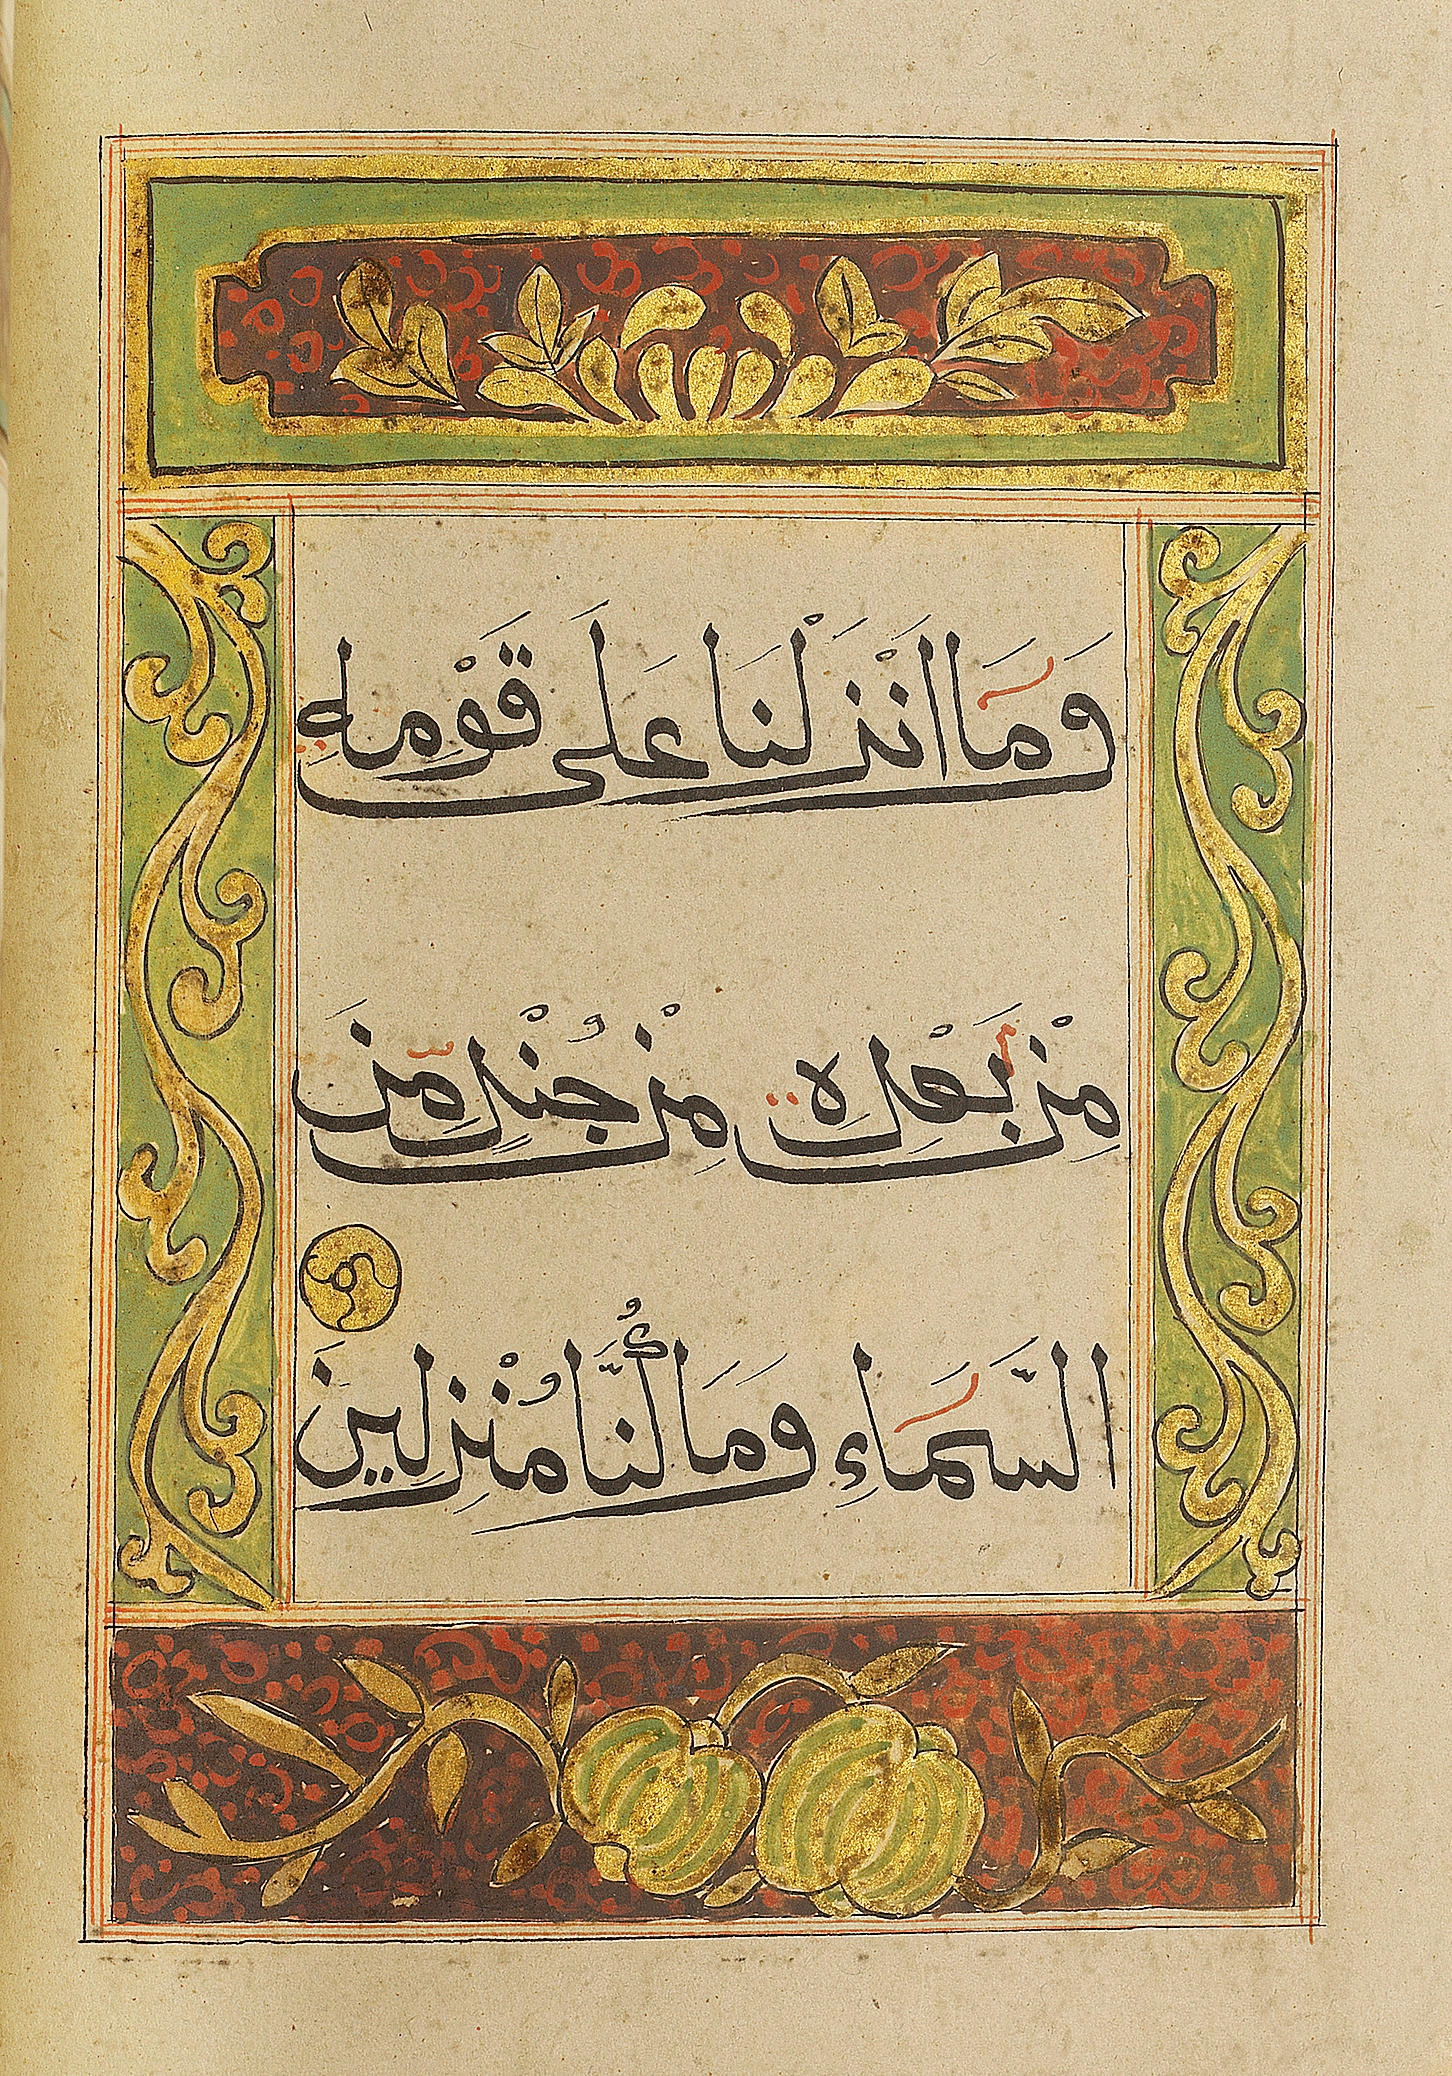 وَمَآ اَنْزَلْنَا عَلَى قَوْمِهٖ
مِنْۢ بَعْدِهٖ مِنْ جُنْدٍ مِّنَ
السَّمَآءِ وَمَا كُنَّا مُنْزِلِينَ